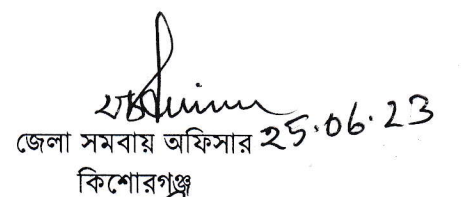 জেলা সমবায় অফিসার 25.06.23
কিশোরগঞ্জ